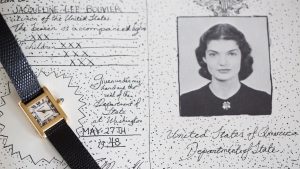 JACQUELINE LEE BOUVIER
citizen of the United States.
The bearer is accompanied by
XXX
XXX
Given under my
hand and
the seal of the
Department of
State
at Washington
MAY 27TH
1948
United States of America
Department of State